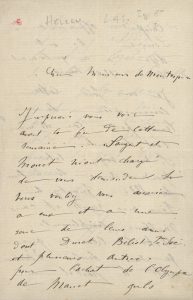 Helleu
Cher Monsieur de Montesquiou
Je pourrai vous voir
avant la fin de cette
semaine. Sargent et
Monet m'ont chargé
de vous demander si
vous voulez vous associer
à eux et à une
de leurs amis
dont Duret
et plusieurs autres
pour l'achat de l'Olympia
de Manet qu'ils